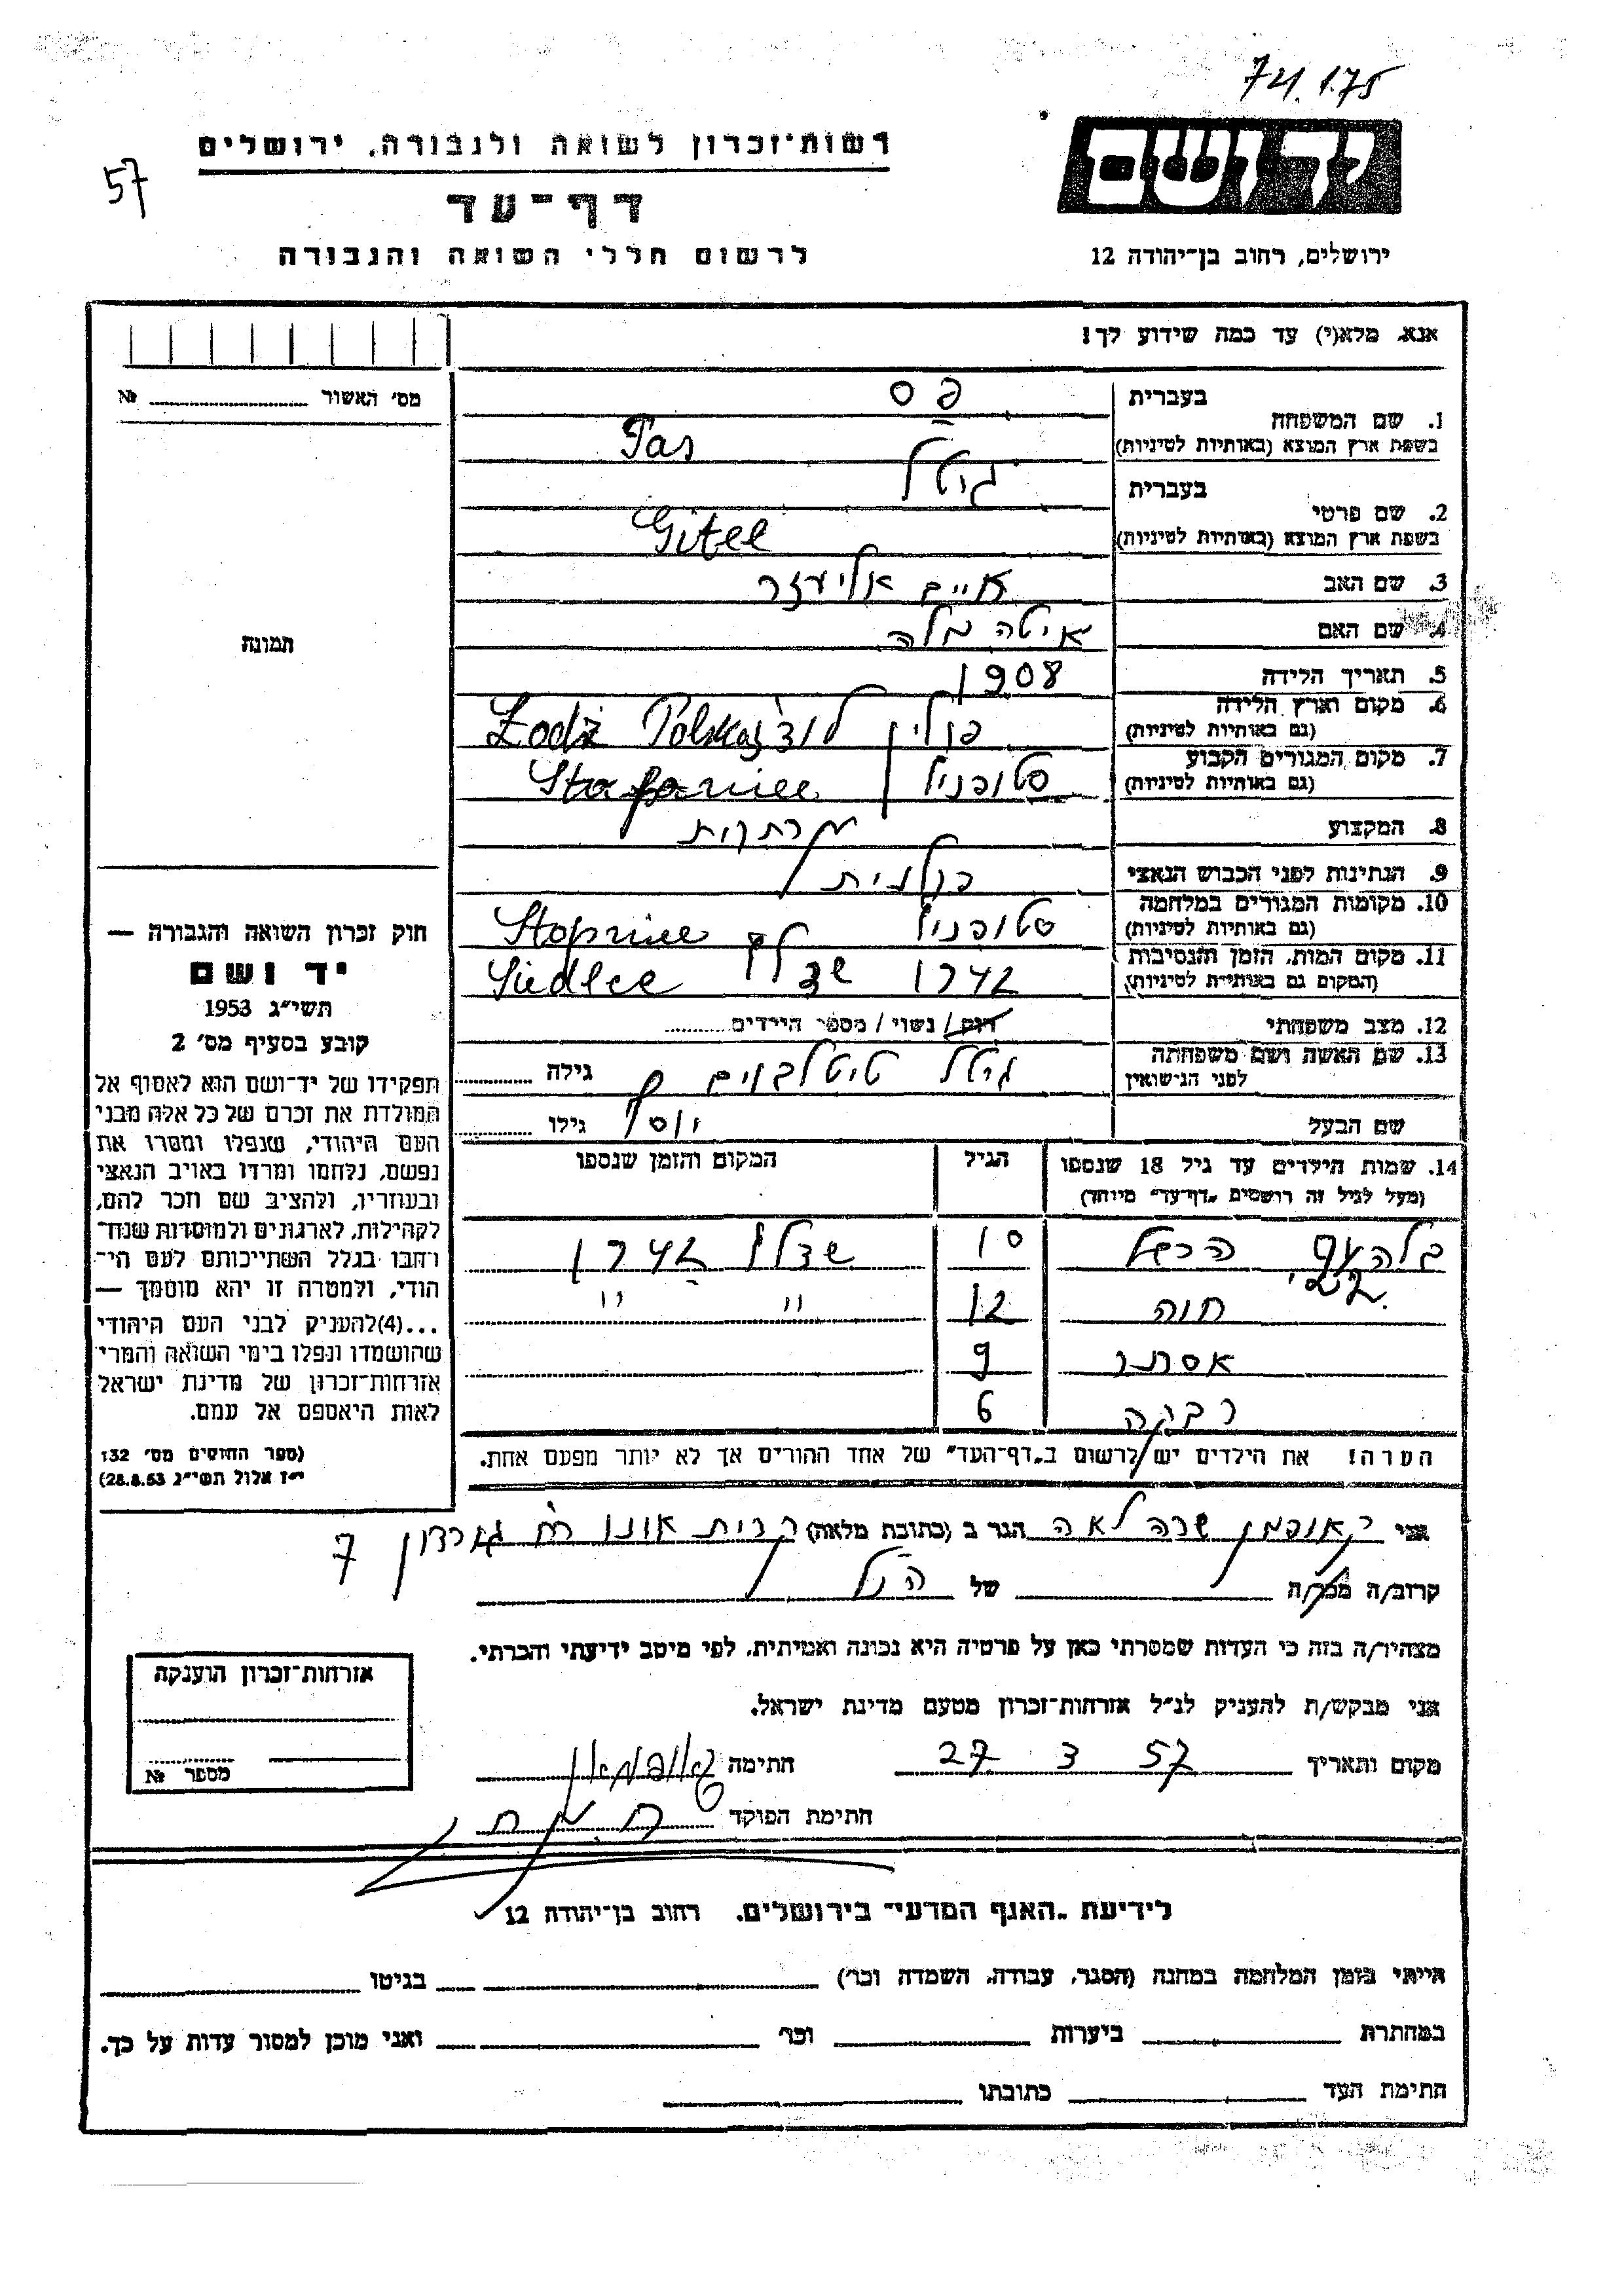 74.175
יד ושם
רשות־זכרון לשואה ולגבורה, ירושלים
57
דף־עד
לרשום חללי השואה והגבורה
ירושלים, רחוב בן־יהודה 12
אנא, מלא(י) עד כמה שידוע לך!
מס׳ האשור № 
בעברית פס
1. שם המשפחה
בשפת ארץ המוצא (באותיות לטיניות) Pas
בעברית גיטל
2. שם פרטי
בשפת ארץ המוצא (באותיות לטיניות) Gitel
3. שם האב חיים אליעזר
4. שם האם איטה בלה
תמונה
5. תאריך הלידה 1908
6. מקום וארץ הלידה
(גם באותיות לטיניות) פולין לודצ׳ Łodż Polska
7. מקום המגורים הקבוע
(גם באותיות לטיניות) סטופניץ
8. המקצוע
9. הנתינות לפני הכבוש הנאצי פולנית
10. מקומות המגורים במלחמה
(גם באותיות לטיניות) סטופניץ
11. מקום המות, הזמן והנסיבות
(המקום גם באותיות לטיניות) שדלץ Siedlce
12. מצב משפחתי רווק / נשוי / מספר הילדים
13. שם האשה ושם משפחתה
לפני הנישואין גיטל טיטלבוים גילה
שם הבעל יוסף גילו
14. שמות הילדים עד גיל 18 שנספו
(מעל לגיל זה רושמים „דף־עד״ מיוחד)
הגיל
המקום והזמן שנספו
10 שדלץ
חוה 12 " "
אסתר 9
רבקה 6
הערה! את הילדים יש לרשום ב„דף־העד״ של אחד ההורים אך לא יותר מפעם אחת.
חוק זכרון השואה והגבורה —
יד ושם
תשי״ג 1953
קובע בסעיף מס׳ 2
תפקידו של יד־ושם הוא לאסוף אל
המולדת את זכרם של כל אלה מבני
העם היהודי, שנפלו ומסרו את
נפשם, נלחמו ומרדו באויב הנאצי
ובעוזריו, ולהציב שם וזכר להם,
לקהילות, לארגונים ולמוסדות שנח־
רחבו בגלל השתייכותם לעם הי־
הודי, ולמטרה זו יהא מוסמך —
...(4)להעניק לבני העם היהודי
שהושמדו ונפלו בימי השואה והמרי
אזרחות־זכרון של מדינת ישראל
לאות היאספם אל עמם.
(ספר החוקים מס׳ 132
י״ז אלול תשי״ג 28.8.53)
אני קאופמן שרה לאה הגר ב (כתובת מלאה) קרית אונו רח׳ גורדון 7
קרוב/ה מכר/ה של הנ״ל
מצהיר/ה בזה כי העדות שמסרתי כאן על פרטיה היא נכונה ואמיתית, לפי מיטב ידיעתי והכרתי.
אני מבקש/ת להעניק לנ״ל אזרחות־זכרון מטעם מדינת ישראל.
מקום ותאריך 27 3 57 חתימה קאופמאן
חתימת הפוקד
אזרחות־זכרון הוענקה
מספר №
לידיעת „האגף המדעי״ בירושלים, רחוב בן־יהודה 12
הייתי בזמן המלחמה במחנה (הסגר, עבודה, השמדה וכו׳) בגיטו
במחתרת ביערות וכו׳ ואני מוכן למסור עדות על כך.
חתימת העד כתובתו